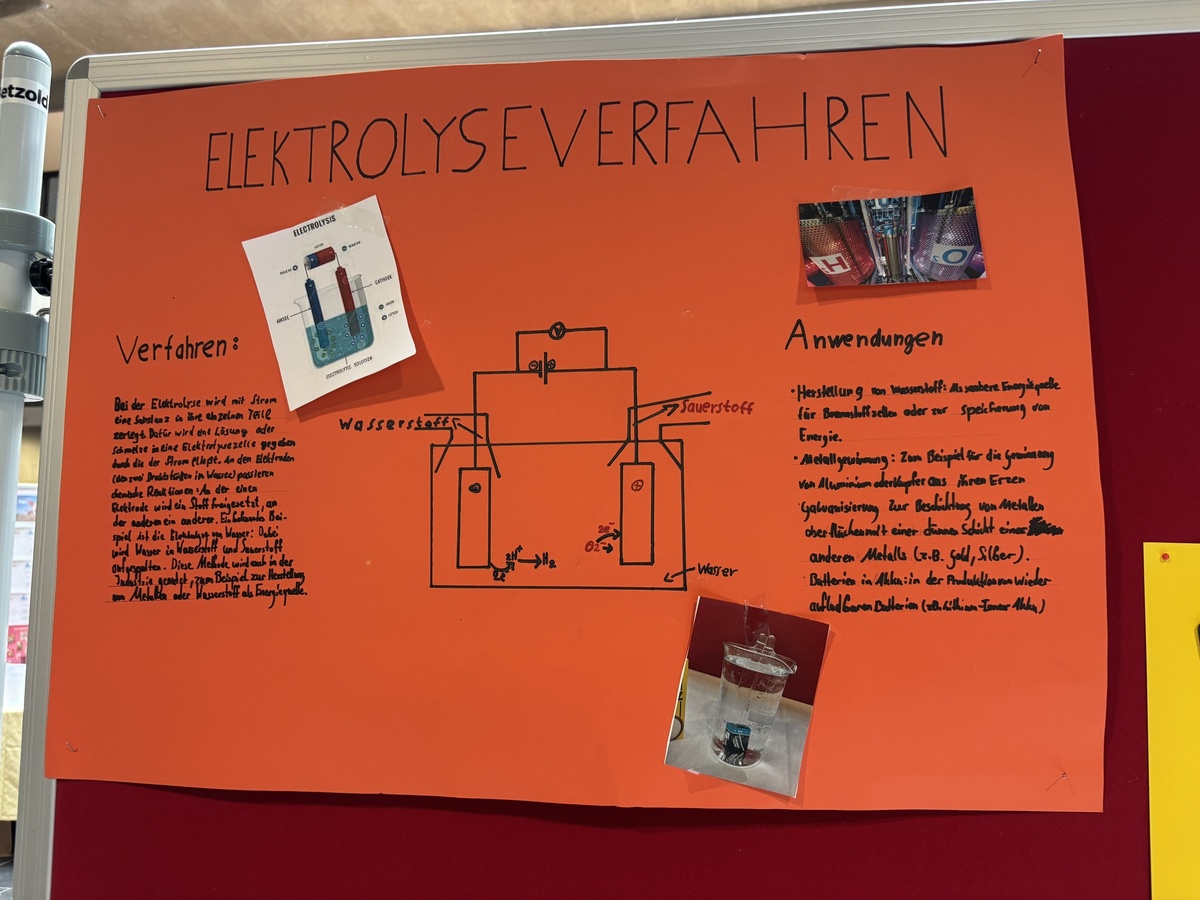 etzold
ELEKTROLYSEVERFAHREN
ELECTROLYSIS
CATHODE
ANODE
ELECTROLYTIC SOLUTION
H
O₂
Verfahren:
Bei der Elektrolyse wird mit Strom
eine Substanz in ihre einzelnen Teile
zerlegt. Dafür wird eine Lösung oder
schmelze in eine Elektrolysezelle gegeben
durch die der Strom fliest. An den Elektroden
(den zwei Drahtstäben im Wasser) passieren
chemische Reaktionen. An der einen
Elektrode wird ein Stoff freigesetzt, an
der anderen ein anderer. Ein bekanntes Bei-
spiel ist die Elektrolyse von Wasser: Dabei
wird Wasser in Wasserstoff und Sauerstoff
aufgespalten. Diese Methode wird auch in der
Industrie genutzt, zum Beispiel zur Herstellung
von Metallen oder Wasserstoff als Energiequelle.
V
Wasserstoff
Sauerstoff
2H⁺
2e⁻
→H₂
2e⁻
O2⁻
Wasser
Anwendungen
·Herstellung von Wasserstoff: Als saubere Energiequelle
für Brennstoffzellen oder zur speicherung von
Energie.
·Metallgewinnung: Zum Beispiel für die Gewinnung
von Aluminium oder Kupfer aus ihren Erzen
·Galvanisierung Zur Beschichtung von Metallen
oberflächen mit einer dünnen Schicht eines
anderen Metalls (z.B. Gold, Silber).
·Batterien in Akku: in der Produktion von wieder
aufladbaren Batterien (z.B. Lithium-Ionen Akku)